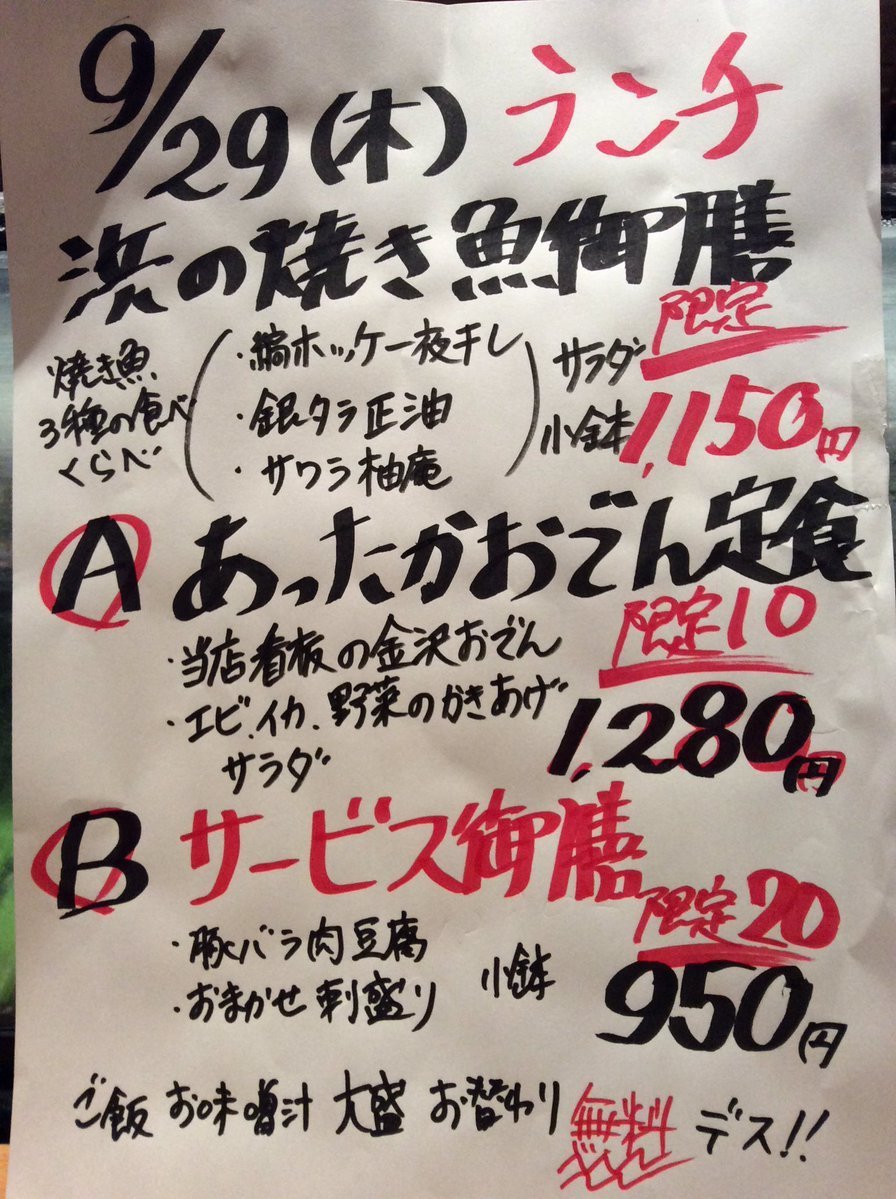 9/29(木) ランチ
浜の焼き魚御膳
限定
焼き魚
3種の食べ
くらべ
・縞ホッケ一夜干し
・銀タラ正油
・サワラ柚庵
サラダ
小鉢
1,150円
A あったかおでん定食
限定10
・当店看板の金沢おでん
・エビ、イカ、野菜のかきあげ
サラダ
1,280円
B サービス御膳
限定20
・豚バラ肉豆腐
・おまかせ刺盛り
小鉢
950円
ご飯 お味噌汁 大盛 お替わり 無料 デス!!